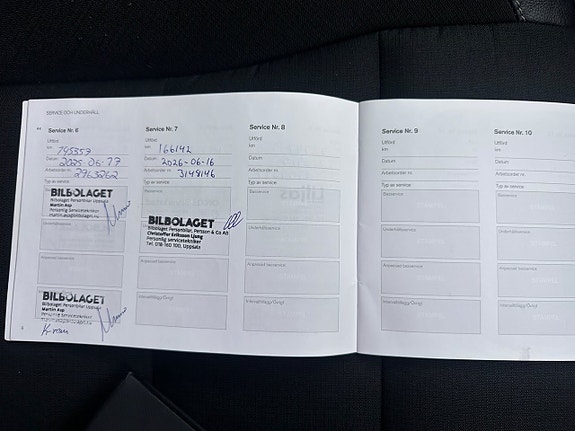 SERVICE OCH UNDERHÅLL
Service Nr. 6
Utförd
km
Datum 2025-06-17
Arbetsorder nr. 2963262
Typ av service
BILBOLAGET
Bilbolaget Personbilar Uppsala
Martin Asp
Personlig Servicetekniker
BILBOLAGET
Bilbolaget Personbilar Uppsala
Martin Asp
Personlig Servicetekniker
6
Service Nr. 7
Utförd
km 166142
Datum 2026-06-16
Arbetsorder nr. 3148146
Typ av service
BILBOLAGET
Bilbolaget Personbilar, Persson & Co AB
Christoffer Eriksson Ljung
Personlig servicetekniker
Tel. 018-160 100, Uppsala
Service Nr. 8
Utförd
km
Datum
Arbetsorder nr.
Typ av service
Basservice
Underhållsservice
Anpassad basservice
Intervalltillägg/Övrigt
Service Nr. 9
Utförd
km
Datum
Arbetsorder nr.
Typ av service
Basservice
Underhållsservice
Anpassad basservice
Intervalltillägg/Övrigt
Service Nr. 10
Utförd
km
Datum
Arbetsorder nr.
Typ av service
Basservice
Underhållsservice
Anpassad basservice
Intervalltillägg/Övrigt